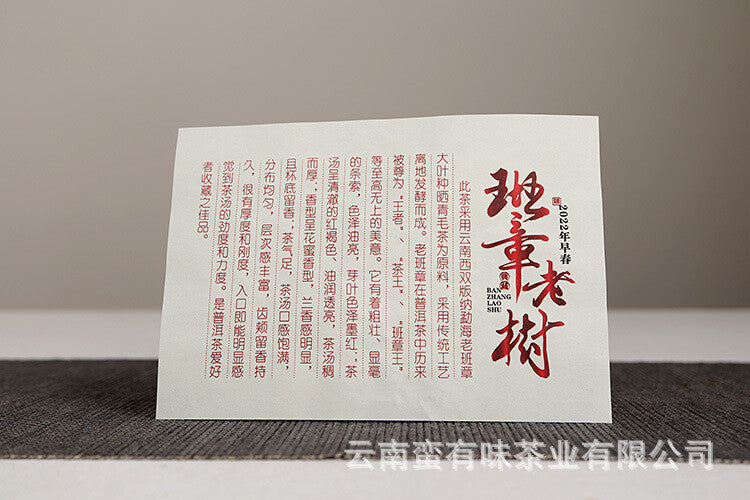 班章老树
2022年早春
BAN
ZHANG
LAO
SHU
此茶采用云南西双版纳勐海老班章
大叶种晒青毛茶为原料，采用传统工艺
离地发酵而成。老班章在普洱茶中历来
被尊为“王者”、“茶王”、“班章王”
等至高无上的美意。它有着粗壮、显毫
的条索，色泽油亮，芽叶色泽墨红；茶
汤呈清澈的红褐色、油润透亮，茶汤稠
而厚；香型呈花蜜香型，兰香感明显，
且杯底留香；茶气足，茶汤口感饱满，
分布均匀，层次感丰富，齿颊留香持
久，很有厚度和刚度，入口即能明显感
觉到茶汤的劲度和力度。是普洱茶爱好
者收藏之佳品。
云南蛮有味茶业有限公司